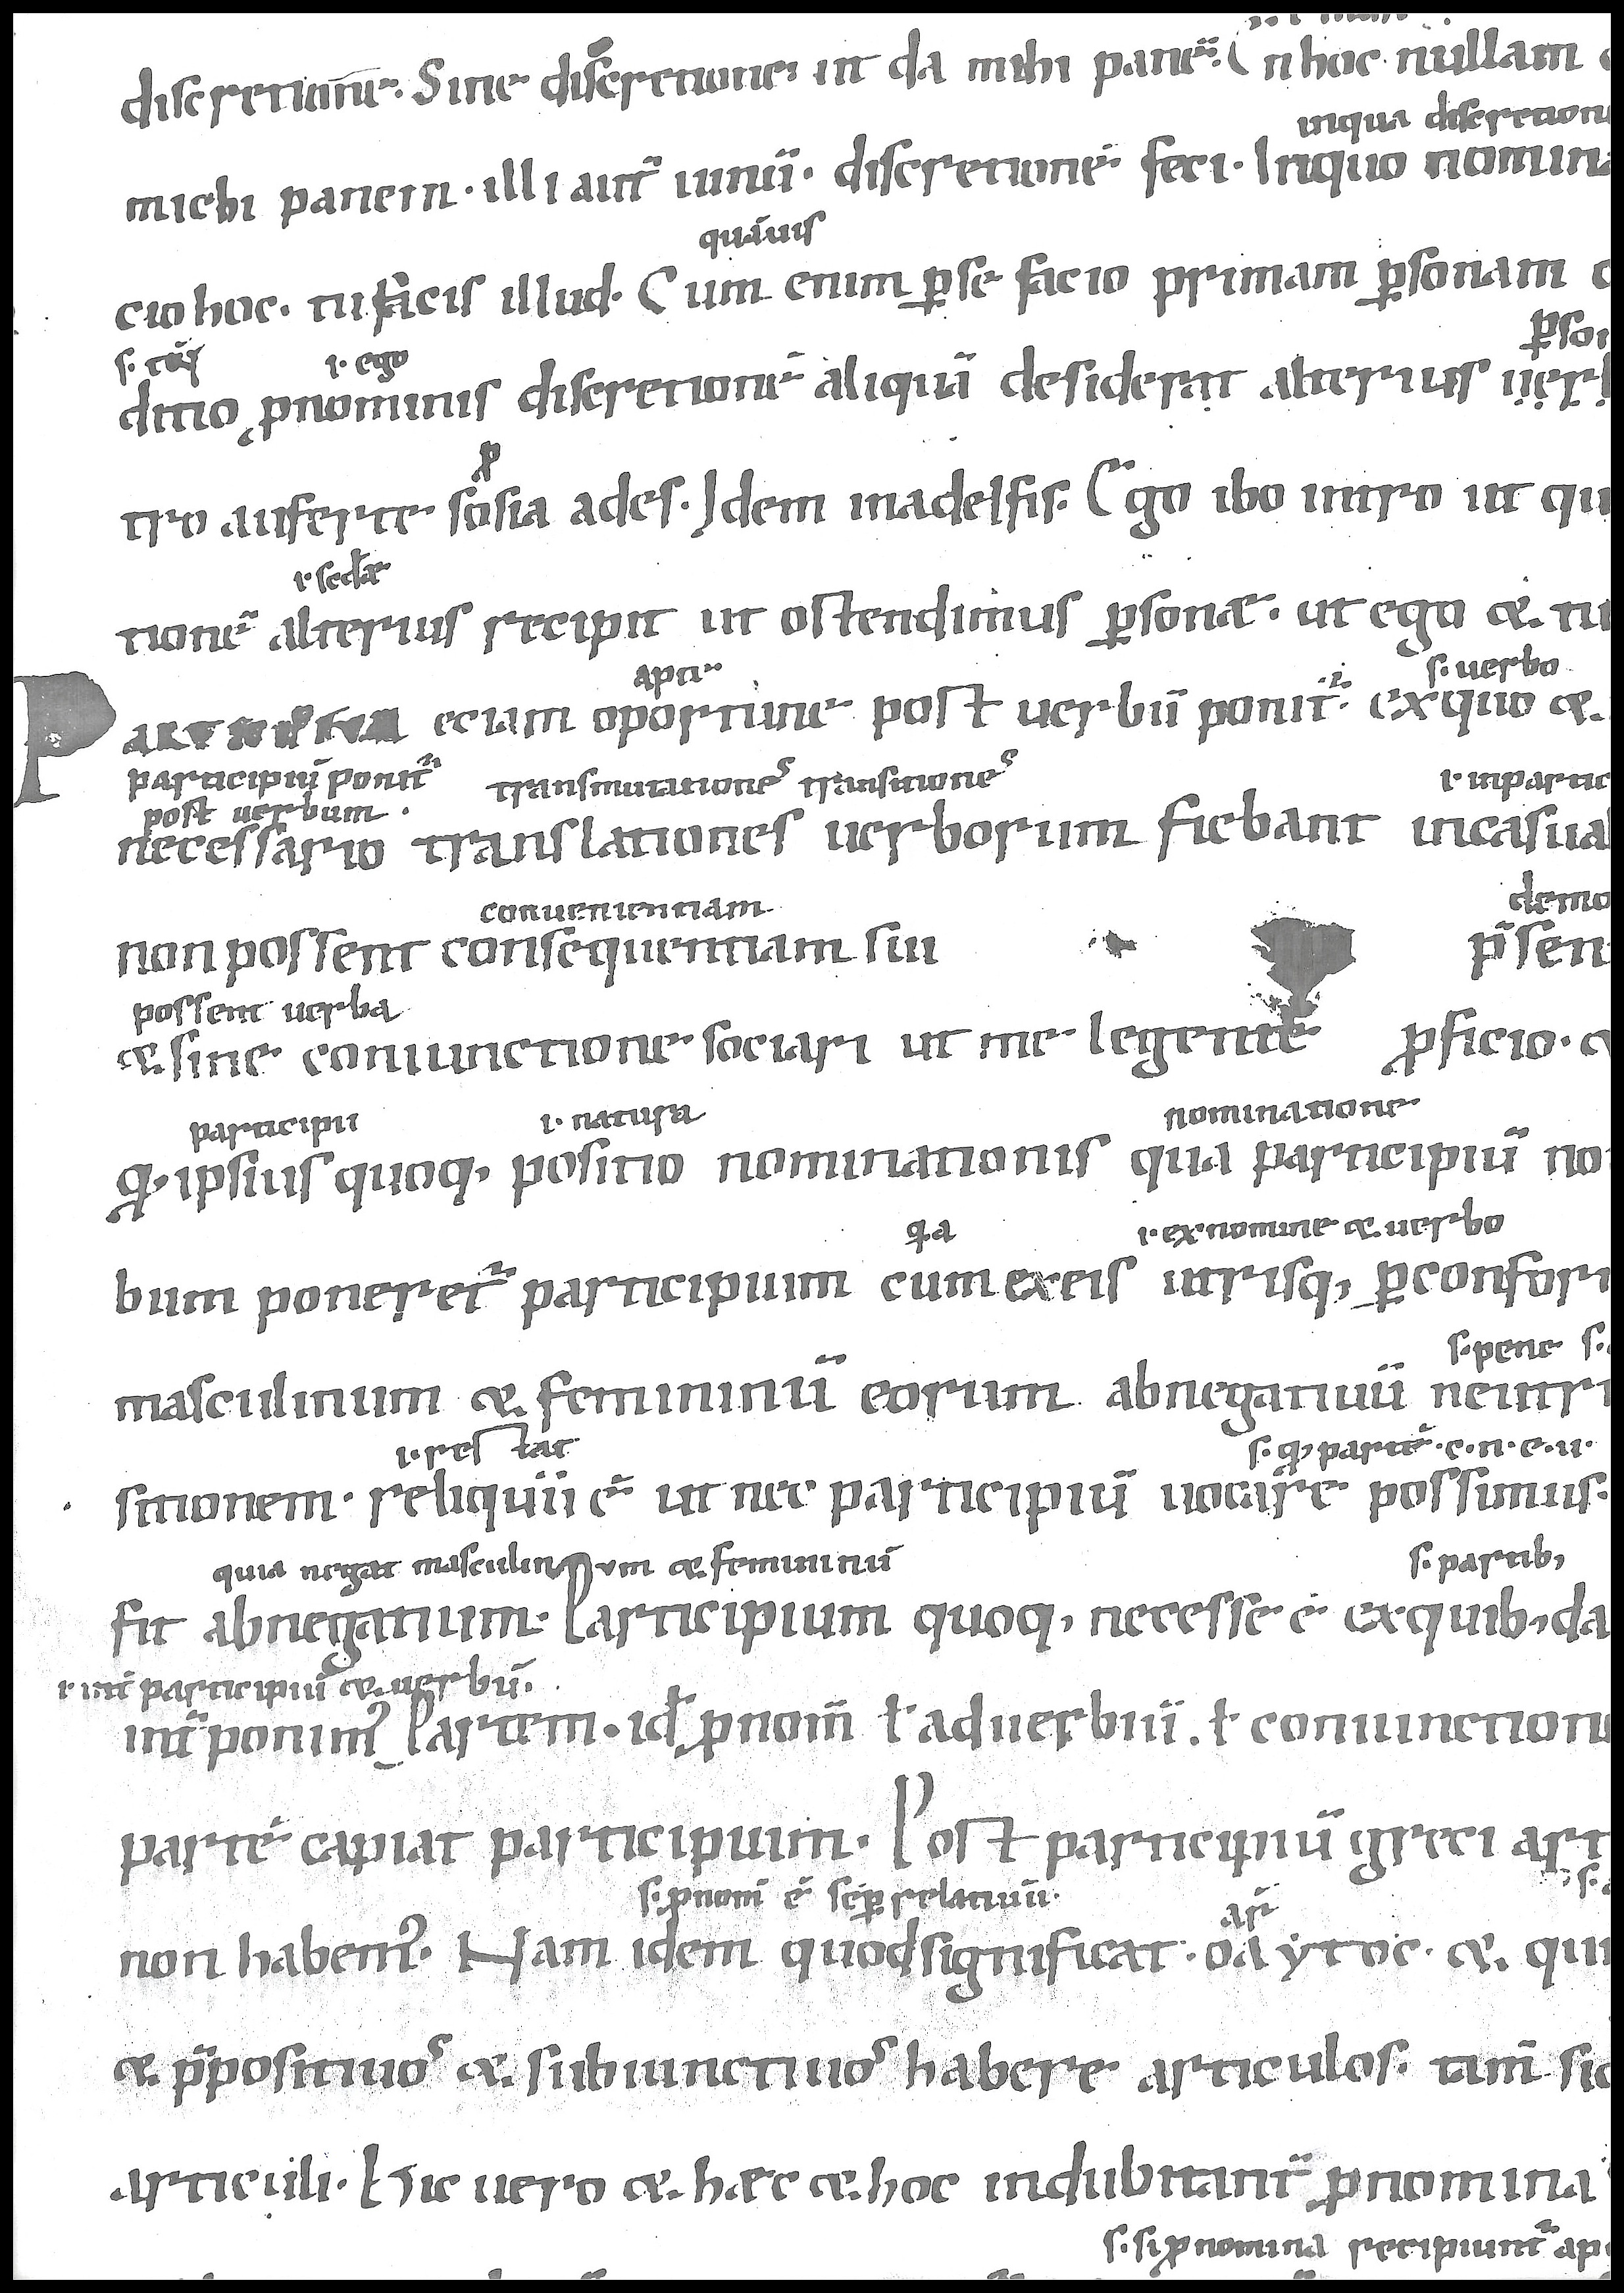 discretione. Sine discretione. ut da mihi panē. In hoc nullam
inqua discretion
michi panem. illi aut̄ uinū. discretionē feci. Inquo nomina
quāuis
cio hoc. tu facis illud. Cum enim ꝑse facio primam ꝑsonam
ꝑson
s. tui i. ego
ditio ꝓnominis discretionē aliquā desiderat alterius uerb
tro auferte sosia ades. Idem inadelfis. Ego ibo intro ut qu
i. scdæ
tionē alterius recipit ut ostendimus ꝑsonæ. ut ego & tu
apti s. uerbo
eciam oportune post uerbū ponit̄. exquo &
participiū ponit̄ transmutationes transitiones i. inpartic
post uerbum.
necessario translationes uerborum fiebant incasual
conuenientiam demo
non possent consequentiam sui p̄sen
possent uerba
& sine coniunctione sociari ut me legente ꝓficio. &
participii i. natura nominatione
q. ipsius quoq, positio nominationis qua participiū no
q.a i. ex nomine & uerbo
bum poneret̄ participium cum exeis utrisq, ꝑconfor
s. pene s.
masculinum & femininū eorum abnegatiuū neutri
i. restat s. q, partē. c. n. e. u.
sitionem. reliquū ē ut nec participiū uocare possimus.
quia negat masculinum & femininū s. partib,
fit abnegatium. Participium quoq, necesse ē exquib, da
i. int̄ participiū & uerbū.
int̄ ponim᾽ Partem. id̄ ꝓnom̄ ł aduerbiū. ł coniunction
partē capiat participium. Post participiū greci art
s. ꝓnom̄ ē sēꝑ relatiuū.
non habem᾽. Nam idem quod significat. & qui
& p̄positiuos & subiunctiuos habere articulos. tam̄ sic
articuli. Hic uero & hæc & hoc indubitant̄ ꝓnomina
s. si ꝓnomina recipiunt̄ ap